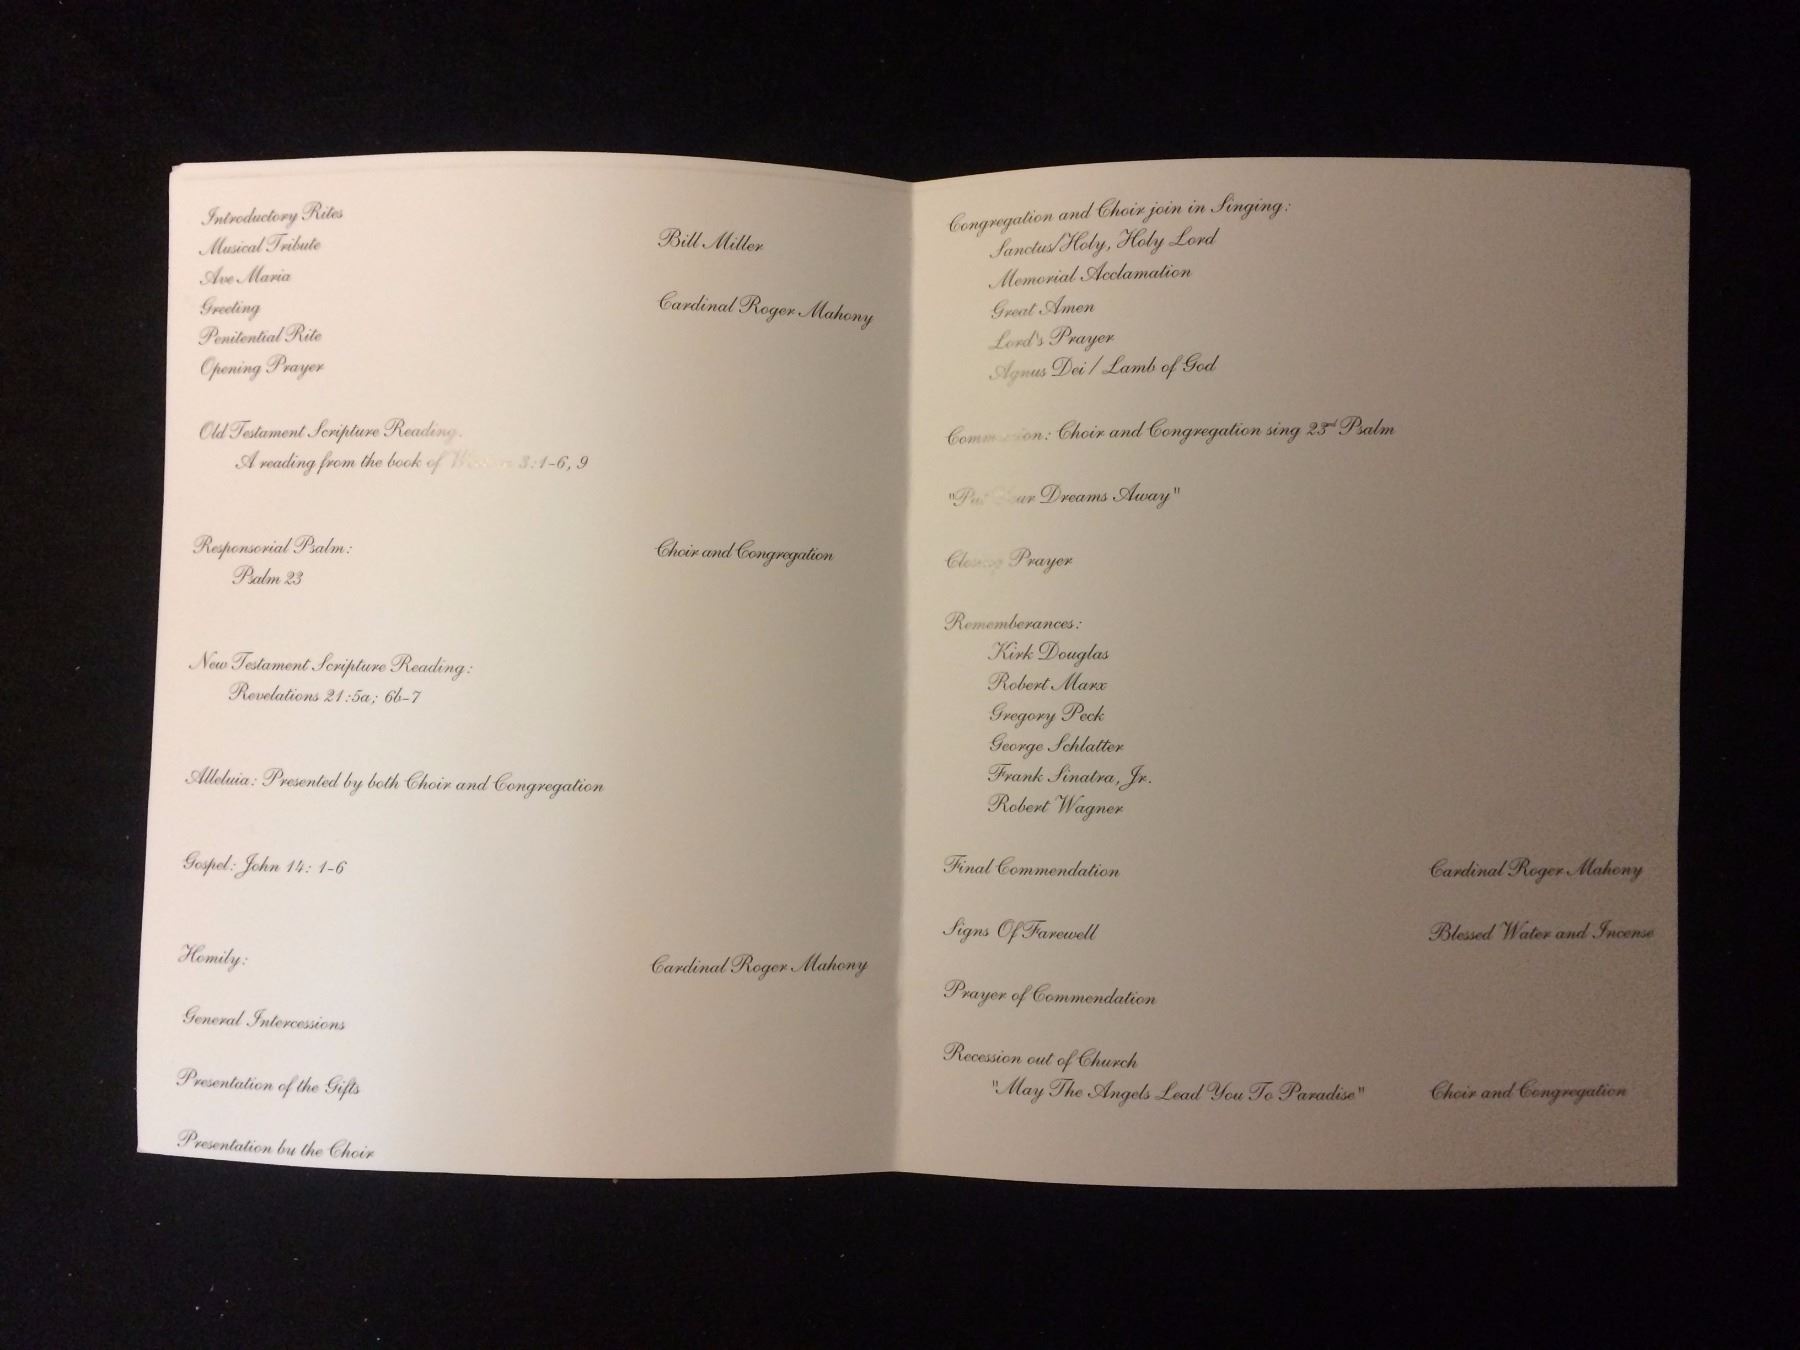 Introductory Rites
Musical Tribute Bill Miller
Ave Maria
Greeting Cardinal Roger Mahony
Penitential Rite
Opening Prayer
Old Testament Scripture Reading:
A reading from the book of Wisdom 3:1-6, 9
Responsorial Psalm: Choir and Congregation
Psalm 23
New Testament Scripture Reading:
Revelations 21:5a; 6b-7
Alleluia: Presented by both Choir and Congregation
Gospel: John 14: 1-6
Homily: Cardinal Roger Mahony
General Intercessions
Presentation of the Gifts
Presentation by the Choir
Congregation and Choir join in Singing:
Sanctus/Holy, Holy Lord
Memorial Acclamation
Great Amen
Lord's Prayer
Agnus Dei / Lamb of God
Communion: Choir and Congregation sing 23rd Psalm
"Put Your Dreams Away"
Closing Prayer
Rememberances:
Kirk Douglas
Robert Marx
Gregory Peck
George Schlatter
Frank Sinatra, Jr.
Robert Wagner
Final Commendation Cardinal Roger Mahony
Signs Of Farewell Blessed Water and Incense
Prayer of Commendation
Recession out of Church
"May The Angels Lead You To Paradise" Choir and Congregation